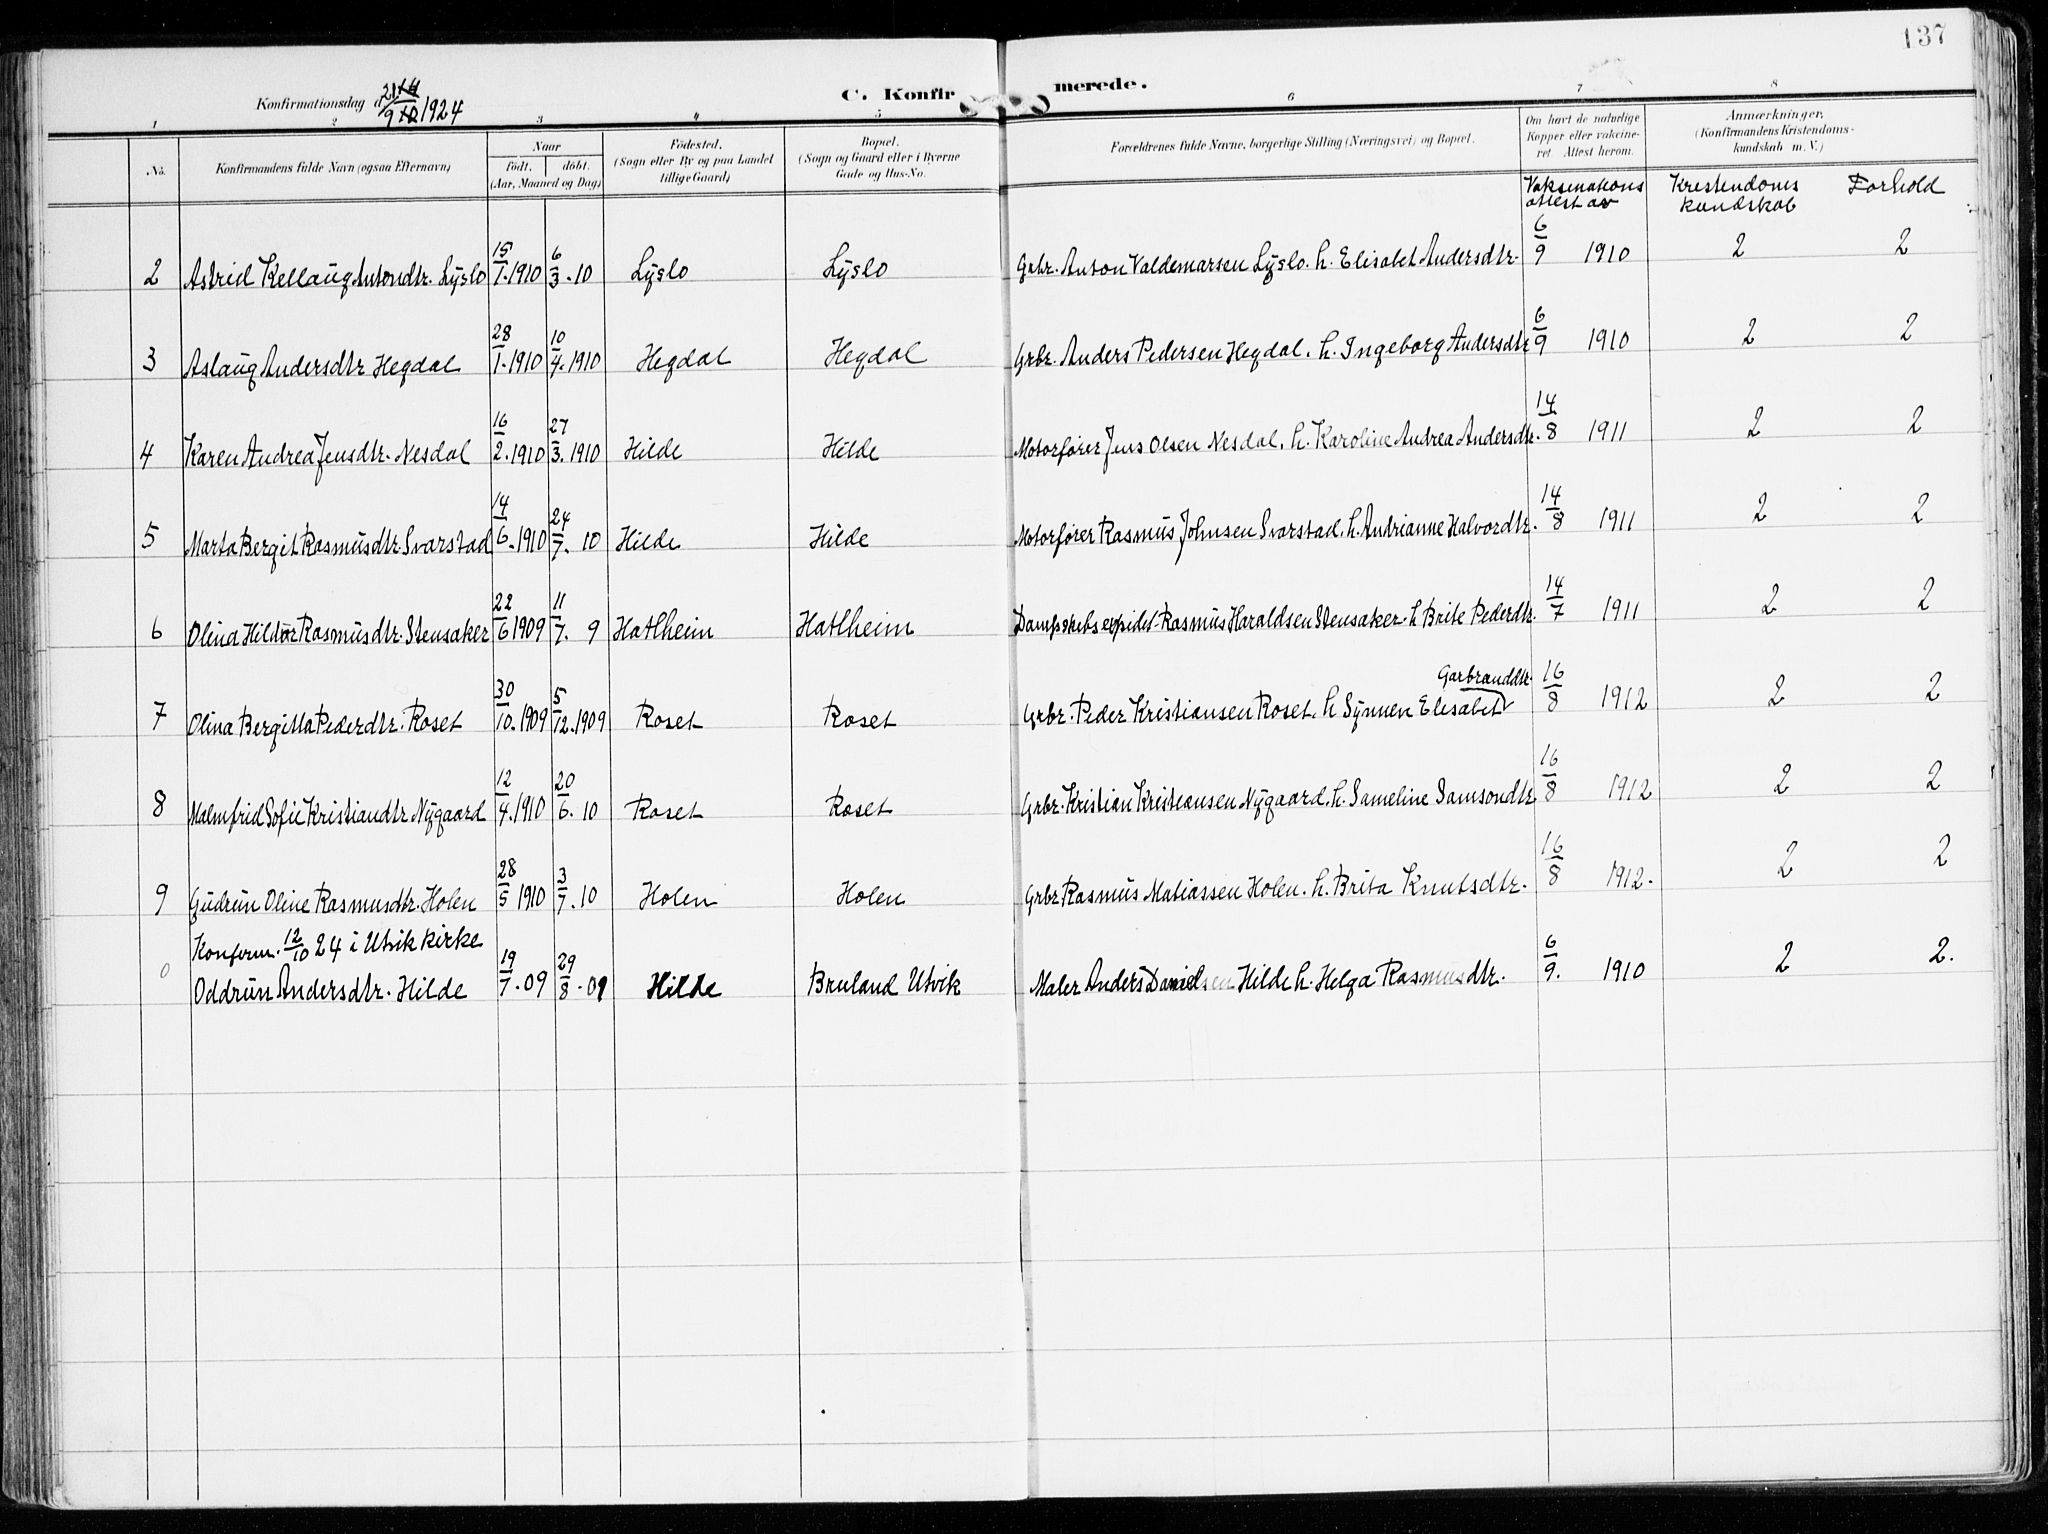 137
Konfirmationsdag d. 21/9 1924
C. Konfirmerede.
1 2 3 4 5 6 7 8
No.
Konfirmandens fulde Navn (ogsaa Efternavn)
Naar
født. døbt.
(Aar, Maaned og Dag)
Fødested.
(Sogn eller By og paa Landet
tillige Gaard)
Bopæl.
(Sogn og Gaard eller i Byerne
Gade og Hus-No.
Forældrenes fulde Navne, borgerlige Stilling (Næringsvei) og Bopæl.
Om havt de naturlige
Kopper eller vakcine-
ret Attest herom.
Anmærkninger.
(Konfirmandens Kristendoms-
kundskab m. V.)
Vaksinations
attest av
Kristendoms
kundskab
Forhold
2 Astrid Kellaug Antondtr. Lyslo 15/1.1910 6/3.10 Lyslo Lyslo Grbr. Anton Valdemarsen Lyslo. h. Elisabet Andersdtr. 6/9 1910 2 2
3 Aslaug Andersdtr Hegdal 28/1.1910 10/4.1910 Hegdal Hegdal Grbr. Anders Pedersen Hegdal. h. Ingeborg Andersdtr 6/9 1910 2 2
4 Karen Andrea Jensdtr. Nesdal 16/2.1910 27/3.1910 Hilde Hilde Motorfører Jens Olsen Nesdal. h. Karoline Andrea Andersdtr. 14/8 1911 2 2
5 Marta Bergit Rasmusdtr. Svarstad 14/6.1910 24/7. 10 Hilde Hilde Motorfører Rasmus Johnsen Svarstad. h. Andrianne Halvordtr. 14/8 1911 2 2
6 Olina Hildur Rasmusdtr. Stensaker 22/6 1909 11/7. 9 Hatlheim Hatlheim Dampskibsexpidet. Rasmus Haraldsen Stensaker. h Brite Pederdtr. 14/7 1911 2 2
7 Olina Bergitta Pederdtr. Roset 30/10.1909 5/12.1909 Roset Roset Grbr. Peder Kristiansen Roset. h Synnen Elisabet Garbranddtr. 16/8 1912 2 2
8 Malmfrid Sofie Kristiandtr Nygaard 12/4.1910 20/6.10 Roset Roset Grbr. Kristian Kristiansen Nygaard. h. Sameline Samsondtr 16/8 1912 2 2
9 Gudrun Oline Rasmusdtr. Holen 28/5 1910 3/7.10 Holen Holen Grbr Rasmus Matiassen Holen. h. Brita Knutsdtr. 16/8 1912. 2 2
Konferm. 12/10 24 i Utvik kirke
0 Oddrun Andersdtr. Hilde 19/7.09 29/8.09 Hilde Bruland Utvik Maler Anders Danielsen Hilde h. Helga Rasmusdtr. 6/9. 1910 2 2.